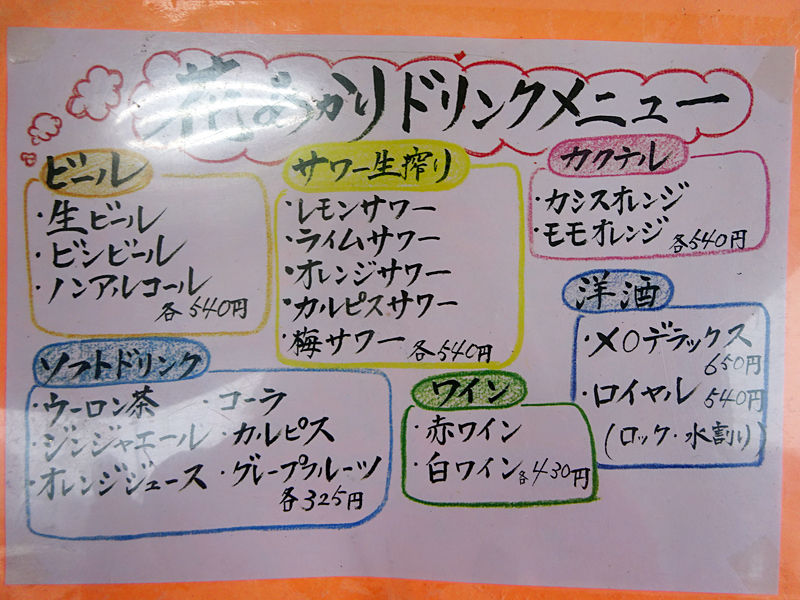 花あかりドリンクメニュー
ビール
・生ビール
・ビンビール
・ノンアルコール
各540円
サワー生搾り
・レモンサワー
・ライムサワー
・オレンジサワー
・カルピスサワー
・梅サワー 各540円
カクテル
・カシスオレンジ
・モモオレンジ 各540円
洋酒
・XOデラックス
650円
・ロイヤル 540円
(ロック・水割り)
ソフトドリンク
・ウーロン茶 ・コーラ
・ジンジャエール ・カルピス
・オレンジジュース ・グレープフルーツ
各325円
ワイン
・赤ワイン
・白ワイン各430円